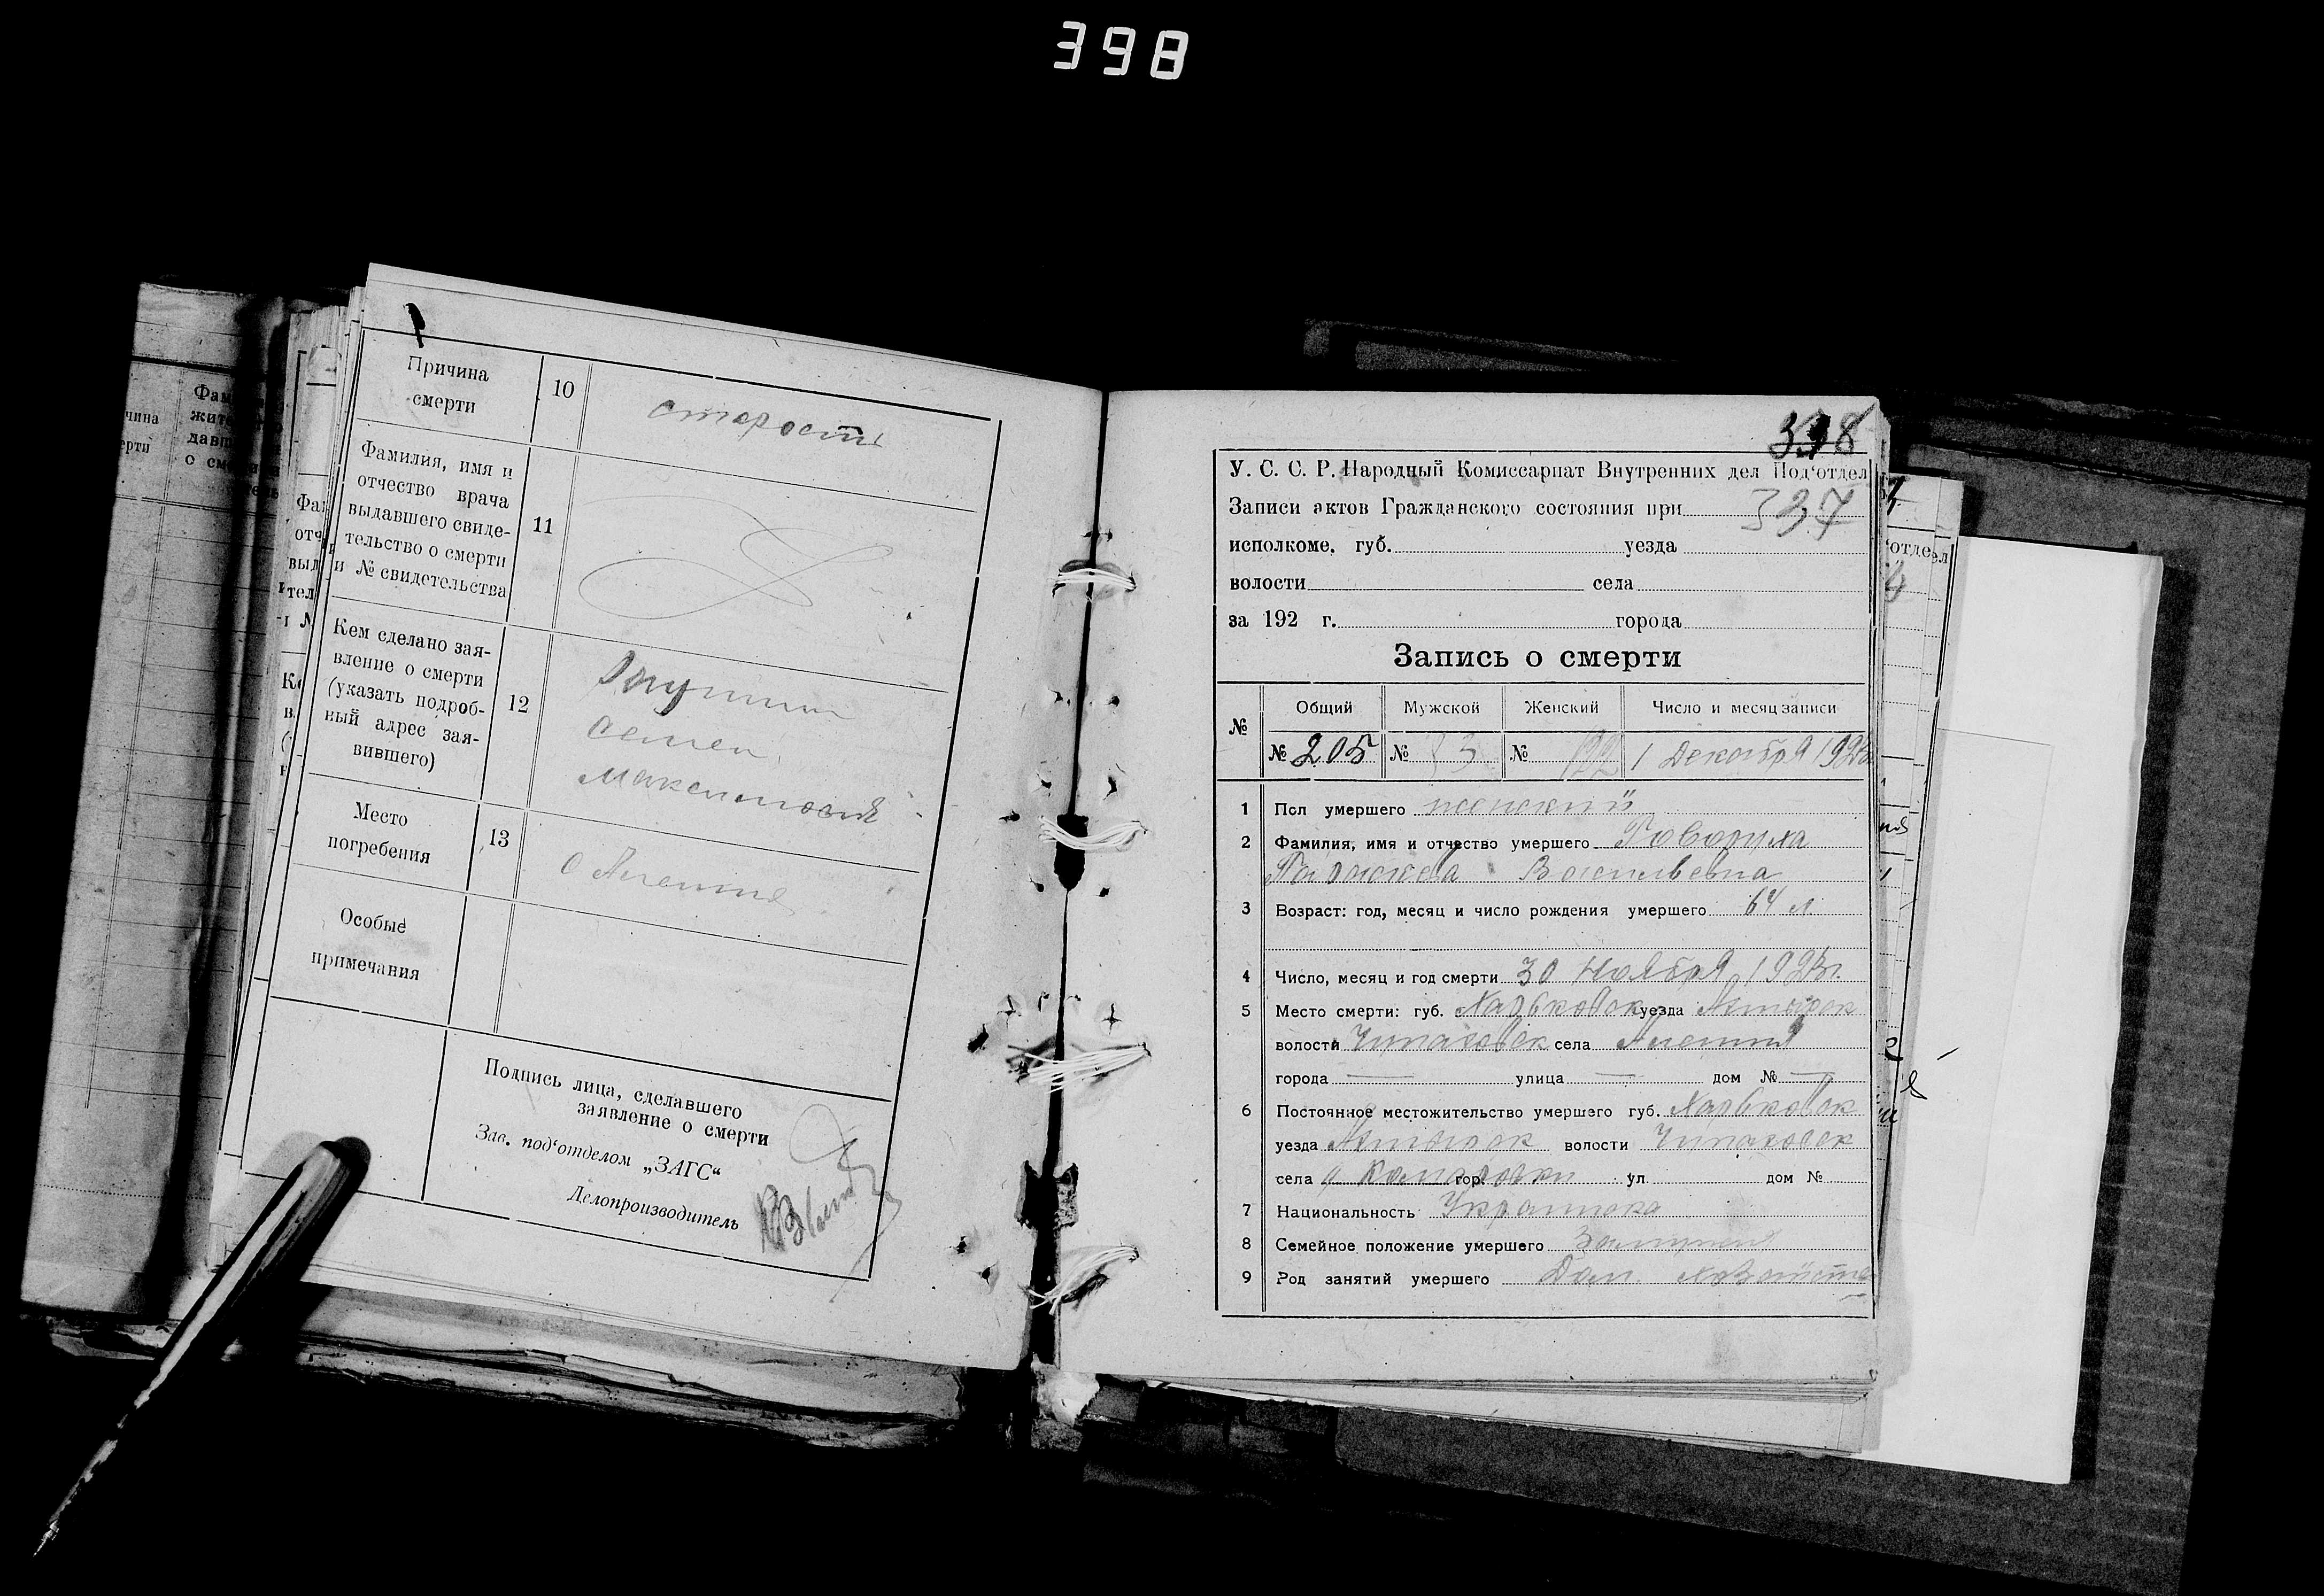 398
чина
ерти
Фам
жите
давш
о см
Фа
отч
выл
тел
Причина
смерти
10
старости
Фамилия, имя и
отчество врача
выдавшего свиде-
тельство о смерти
и № свидетельства
11
Кем сделано зая-
вление о смерти
(указать подроб-
ный адрес зая-
вившего)
12
Семен
Максимович
Место
погребения
13
Особые
примечания
Подпись лица, сделавшего
заявление о смерти
Зав. под‘отделом „ЗАГС“
Делопроизводитель
338
У. С. С. Р. Народный Комиссариат Внутренних дел Под‘отдел
Записи актов Гражданского состояния при 337
исполкоме. губ. уезда
волости села
за 192 г. города
Запись о смерти
№ Общий Мужской Женский Число и месяц записи
№ 205 № № 122 1 Декабря 1923
1 Пол умершего женский
2 Фамилия, имя и отчество умершего Говоруха
Васильевна
3 Возраст: год, месяц и число рождения умершего 64 л.
4 Число, месяц и год смерти 30 Ноября 1923 г.
5 Место смерти: губ. Харьковск уезда Ахтырск
волости Чупаховск села Алешня
города — улица — дом № —
6 Постоянное местожительство умершего губ. Харьковск
уезда Ахтырск волости Чупаховск
села гор. ул. дом №
7 Национальность Украинка
8 Семейное положение умершего Замужем
9 Род занятий умершего Дом. хозяйство
‘отдел